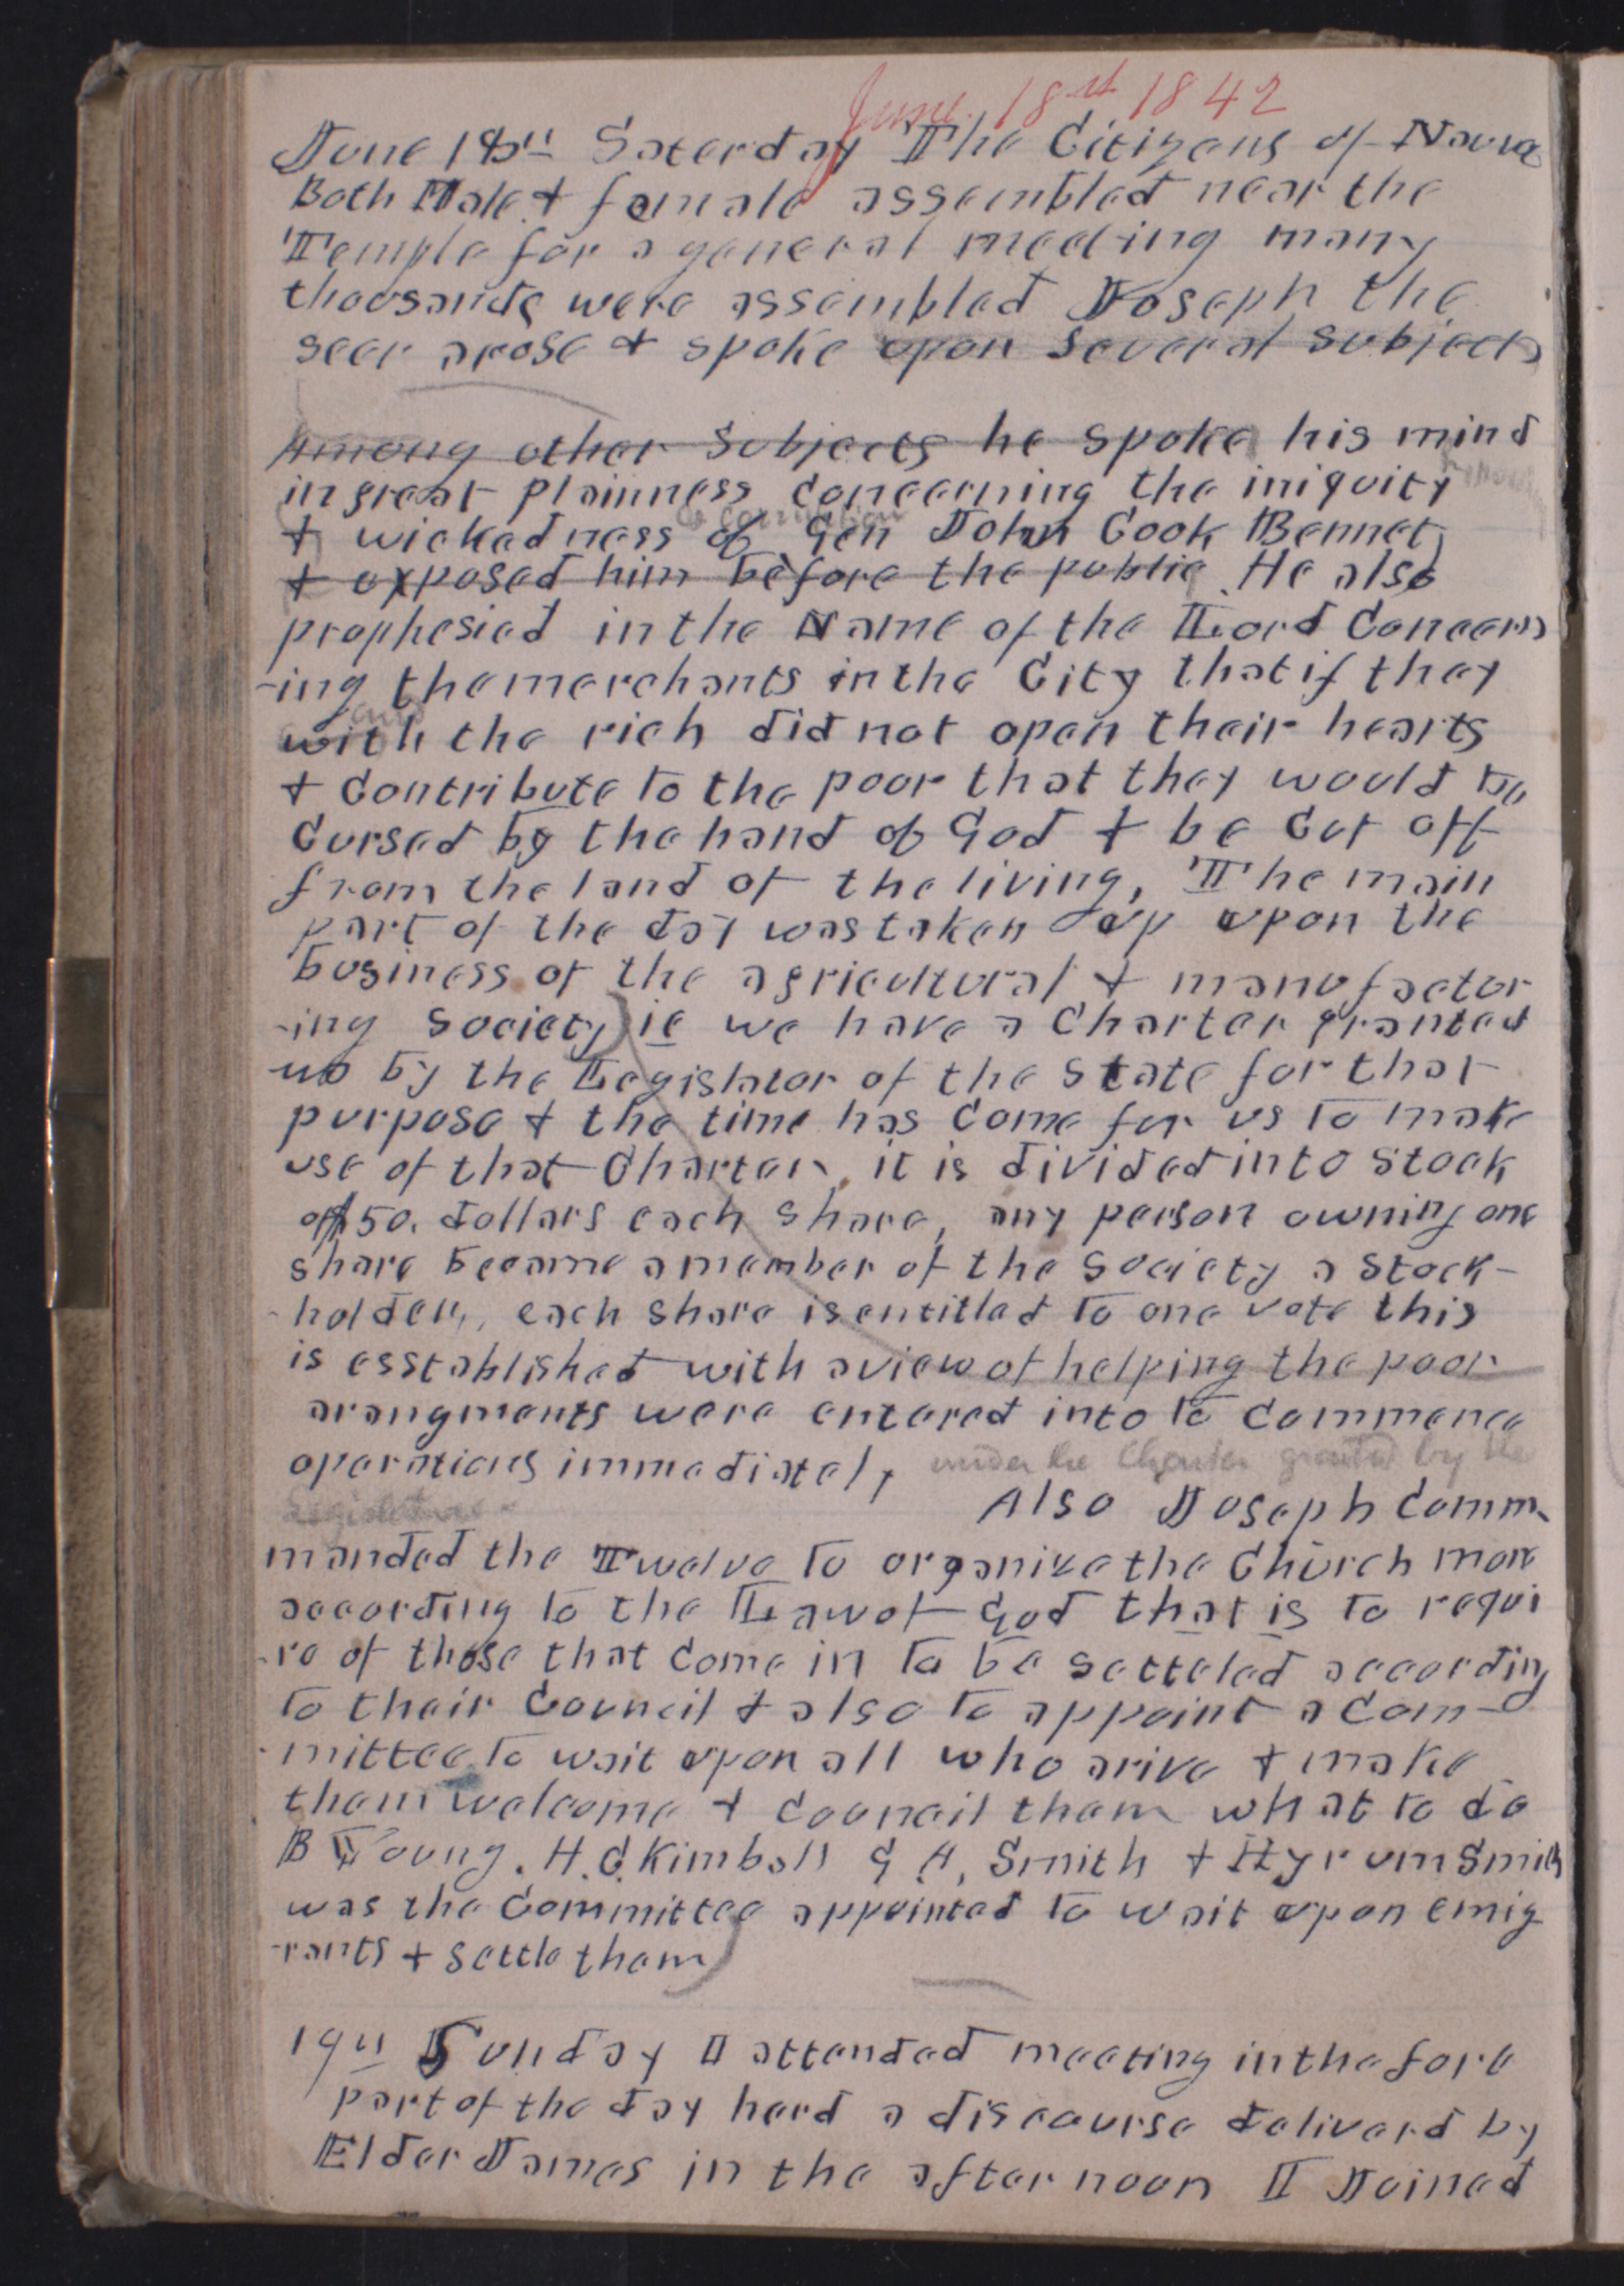 June 18st 1842
June 18th Saterday The Citizens of Nauvoo
Both Male & female assembled near the
Temple for a general meeting many
thousands were assembled Joseph the
seer arose & spoke upon several subjects
Among other subjects he spoke his mind
in great plainness concerning the iniquity
& corruption
& wickedness of Gen John Cook Bennet
& exposed him before the public He also
prophesied in the Name of the Lord Concern
-ing the merchants in the City that if they
and
with the rich did not open their hearts
& contribute to the poor that they would be
Cursed by the hand of God & be cut off
from the land of the living, The main
part of the day was taken up upon the
business of the agricultural & manufactor
-ing society ie we have a Charter granted
us by the Legislator of the State for that
purpose & the time has come for us to make
use of that Charter, it is divided into stock
of $50. dollars each share, any person owning one
share became a member of the society a stock-
holder,, each share is entitled to one vote this
is esstablished with a view of helping the poor
arangments were entered into to commence
operations immediately under the Charter granted by the
Legislature
Also Joseph Comm-
manded the Twelve to organize the Church more
according to the Law of God that is to requi
-re of those that come in to be setteled according
to their Council & also to appoint a Com-
-mittee to wait upon all who arive & make
them welcome & council them what to do
B Young, H. C. Kimball G A, Smith & Hyrum Smith
was the Committee appointed to wait upon emig
-rants & settle them
19th Sunday I attended meeting in the fore
part of the day hard a discourse deliverd by
Elder James in the after noon I Joined